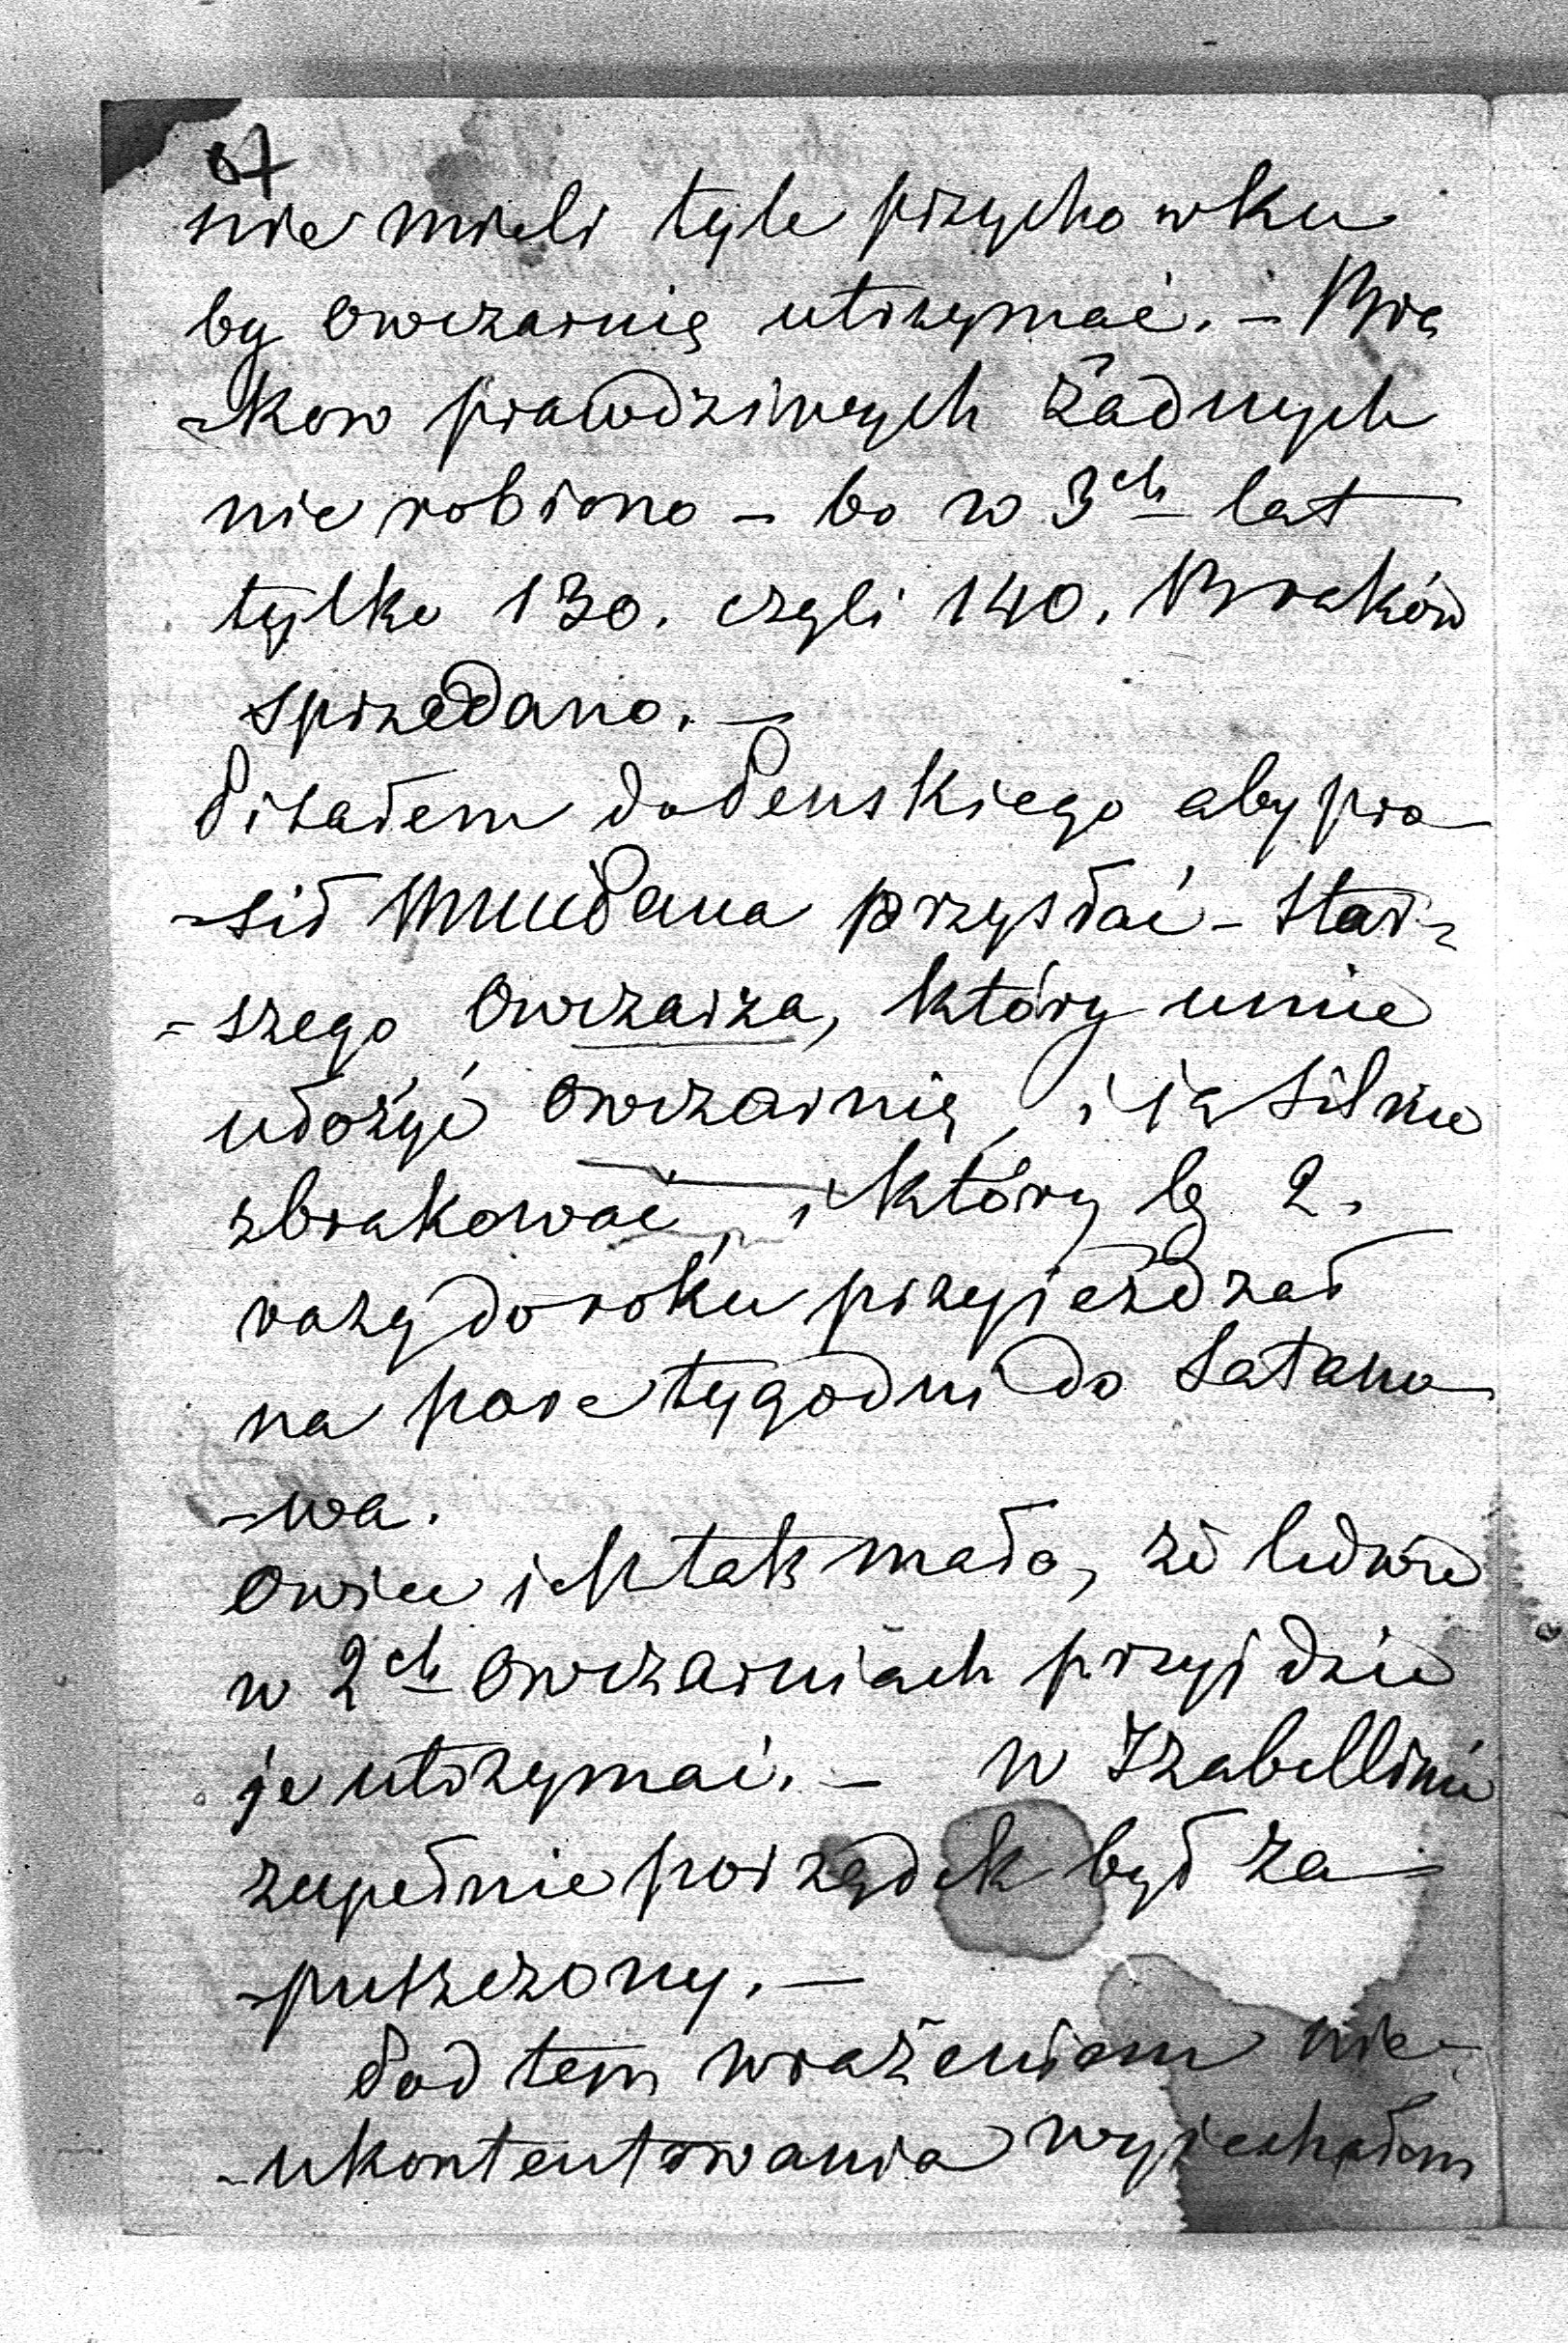 67
nie mieli tyle przychowku
by owczarnię utrzymać. – Bra
-kow prawdziwych żadnych
nie robiono – bo w 3ch lat
tylko 130. czyli 140. Braków
sprzedano. –
Pisałem do Penskiego aby pro
-sił przysłać – star-
-szego Owczarza, który umie
ułożyć owczarnię, i ją silnie
zbrakować, i który by 2.
razy do roku przyjeżdzał
na pare tygodni do Satano
-wa.
Owiec ich tak mało, że ledwie
w 2ch owczarniach przyjdzie
je utrzymać. – w Izabellinie
zupełnie porządek był za
-puszczony. –
Pod tem wrażeniem nie-
-ukontentowania wyjechałem